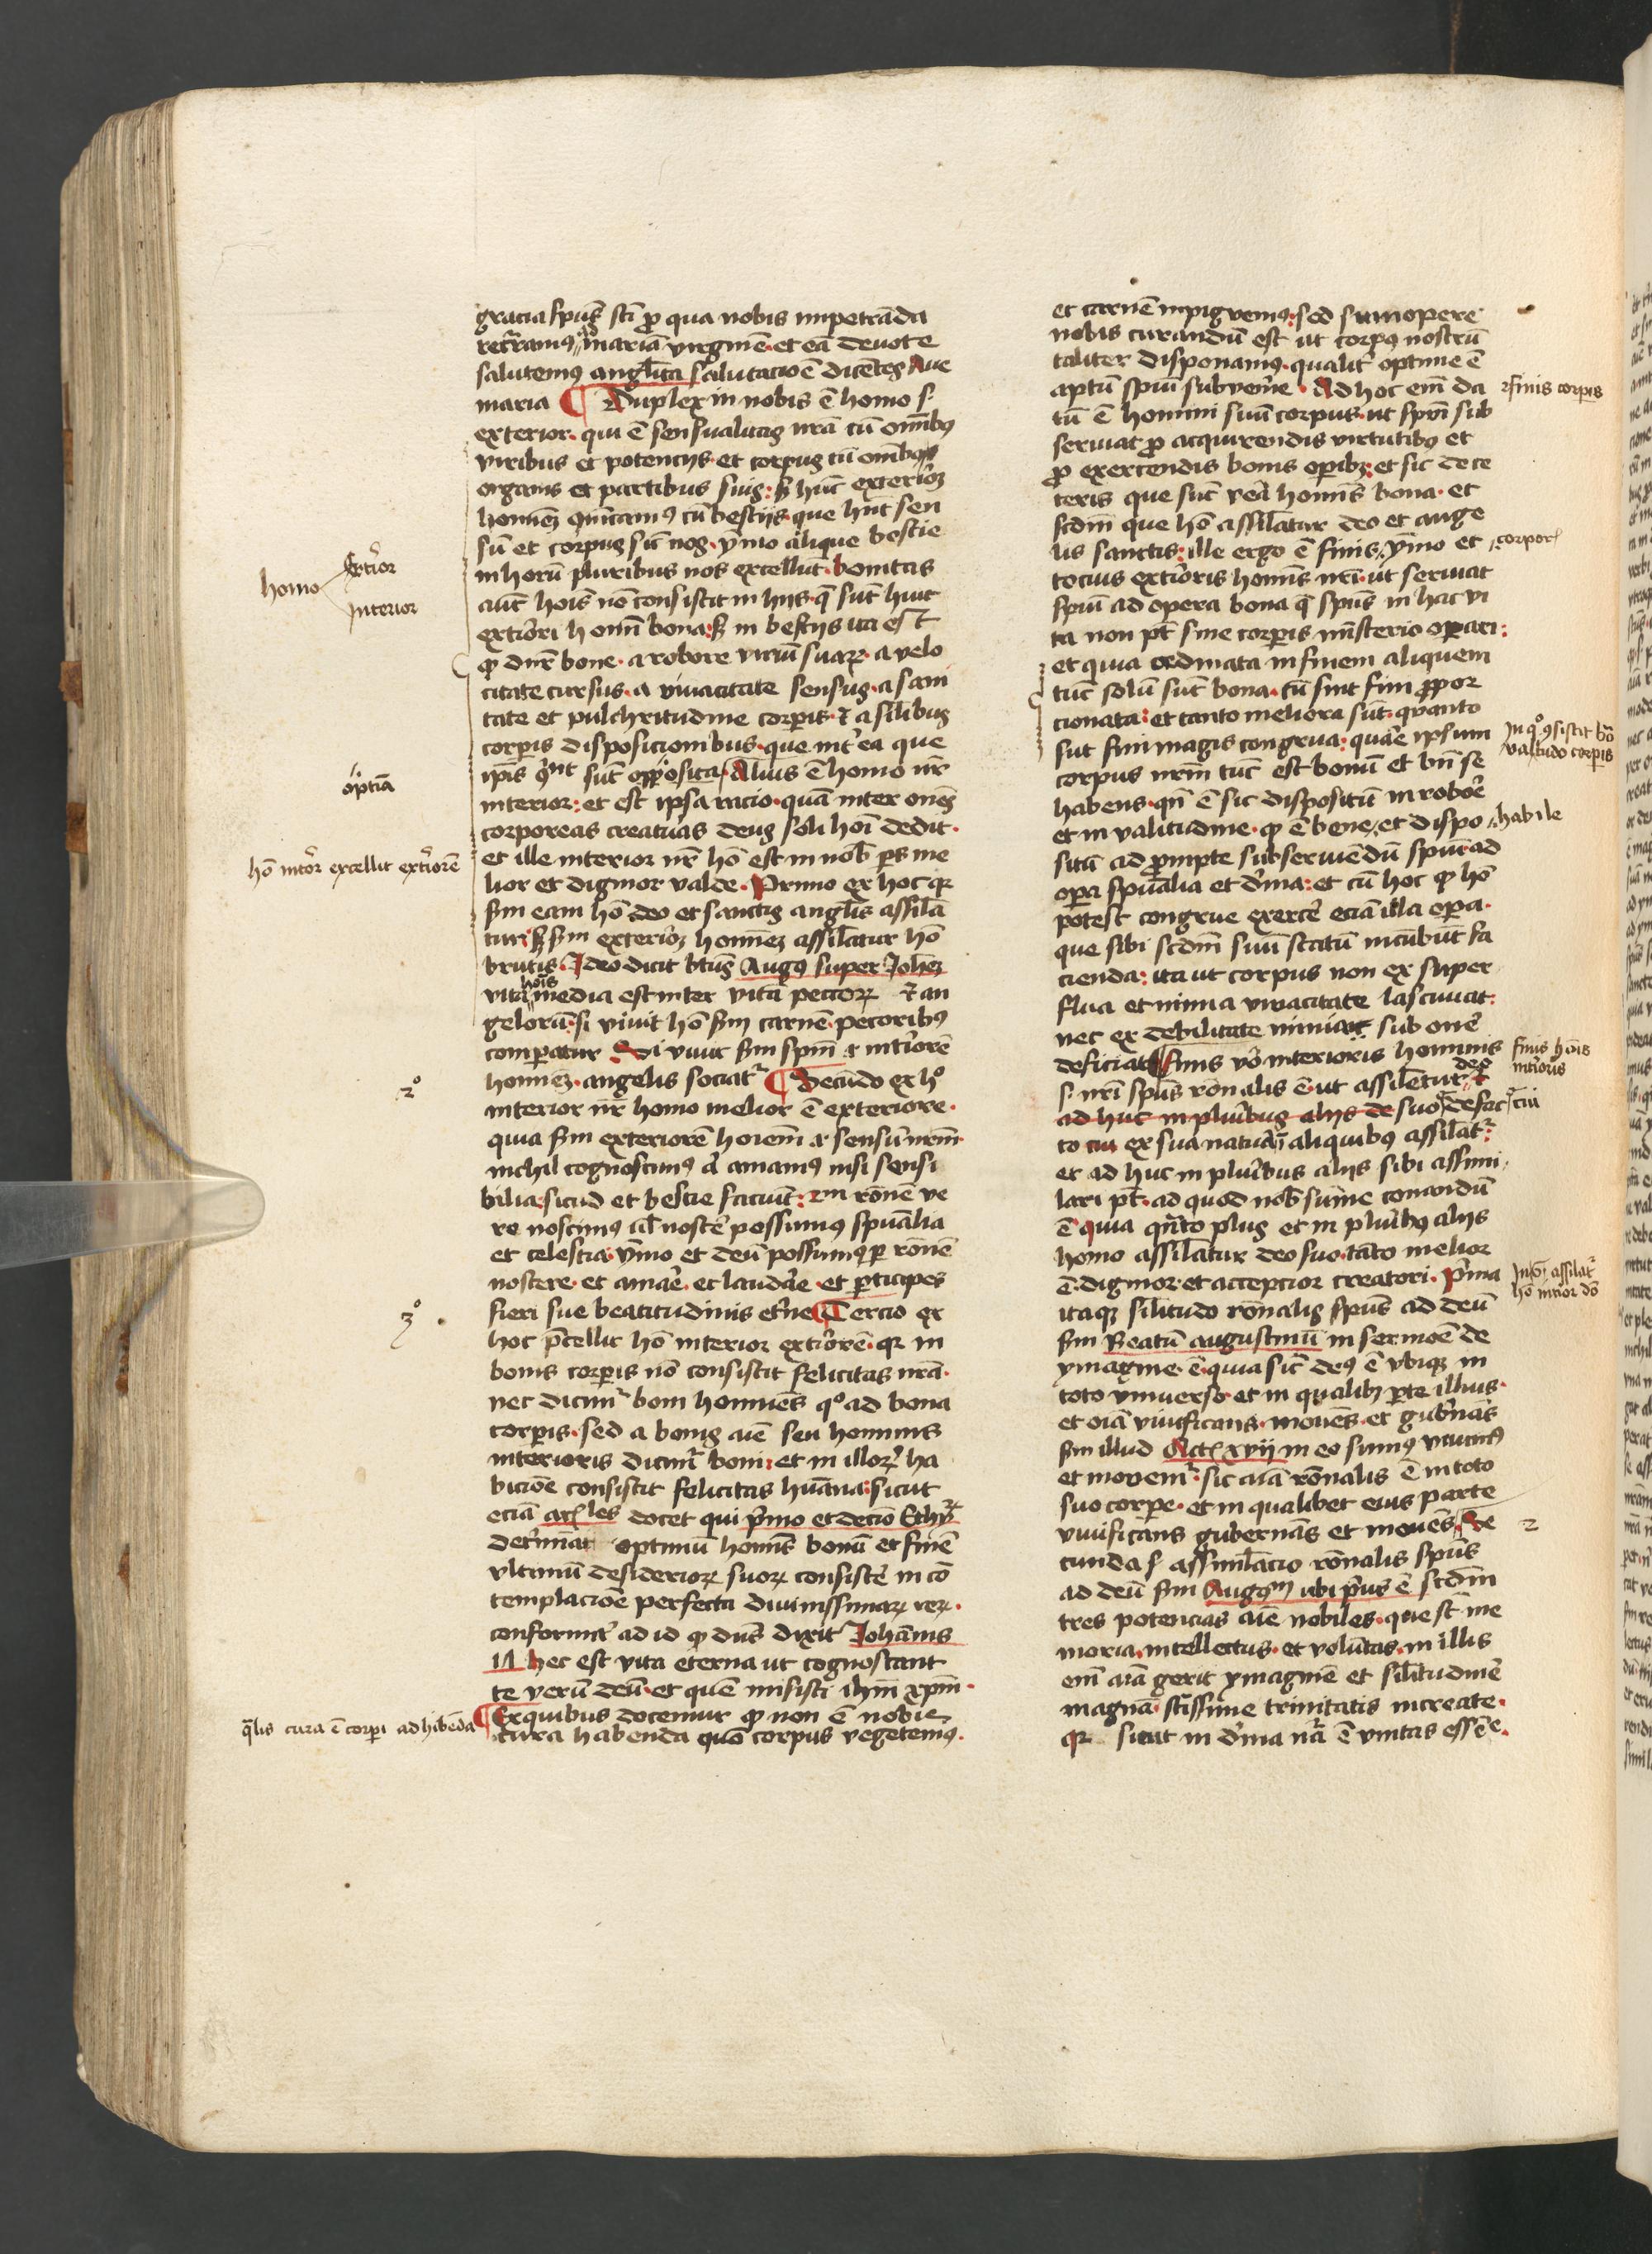 gracia spūs sti pro qua nobis impetrāda
recurramus ad mariā virginē et eā deuote
salutemus anglica salutacōe dicētes Aue
maria ¶ Duplex in nobis ē homo s.
exterior. qui ē sensualitas nrā cū omībus
viribus et potencijs. et corpus cū omībus
organis et partibus suis: hūc exteriorē
hominē cū bestijs. que hnt sen
sū et corpus sic nos. ymo alique bestie
in horū pluribus nos excellūt. bonitas
aut hois nō consistit in hijs. q̄ sunt huic
exteriori homī bona: in bestijs ita est
bone. a robore viriū suarꝝ. a velo
citate cursus. a viuacitate sensus. a sani
tate et pulchritudine corpis. et a silibus
corpis disposicionibus. que int' ea que
sunt opposita. Alius ē homo nr̄
interior: et est ipsa racio. quā inter onēs
corporeas creaturas deus soli hoi dedit.
et ille interior nr̄ hō est in nob ps me
lior et dignior valde. Primo ex hoc qꝫ
scdm eam hō deo et sanctis anglis assila
tur scdm exteriorē hominē assilatur hō
brutis. Ideo dicit btūs Augus super Johem
vita hois media est inter vitā pecorꝝ et an
gelorū. si viuit hō scdm carnē. pecoribus
comparatur Si viuit scdm spm et intiorē
hominē. angelis sociatr ¶ Secūdo ex ho
interior nr̄ homo melior ē exteriore.
quia scdm exteriorē hoiem et sensū nrm.
nichil cognoscimus amamus nisi sensi
bilia: sicud et bestie faciūt: rōnē ve
re noscimus noscē possumus spualia
et celestia. ymo et deū possumus per rōnē
noscere. et amare. et laudare. et perticipes
fieri sue beatitudinis etne ¶ Tercio ex
hoc pcellit hō interior extiorē. qꝫ in
bonis corpis nō consistit felicitas nrā.
nec dicimr boni homines qo ad bona
corpis. sed a bonis aīe seu hominis
interioris dicimr boni: et in illorꝝ ha
bicōe consistit felicitas huāna: sicut
eciā docet qui pmo et decio Ethꝝ
detminat optimū hoīs bonū et finē
vltimū desideriorꝝ suorꝝ consistē in cō
templacōe perfecta diuinissimarꝝ rerꝝ.
conformit' ad id dūs dixit Johānis
17 hec est vita eterna ut cognoscant
te verū deū. et quē misisti ihm xpm.
¶ Ex quibus docemur non ē nobis
cura habenda quō corpus vegetemus.
homo
extior
interior
hō intor excellit extiorē
2o
3o
q̄lis cura ē corpi adhibēda
et carnē inpigvemus: sed sumopere
nobis curandū est ut corpus nostrū
taliter disponamus. qualit' optime ē
aptū spiui subvenire. Ad hoc em da
tū ē homini suū corpus. ut spui sub
seruiat pro acquirendis virtutibus et
pro exercendis bonis opibꝫ: et sic de ce
teris que sūt homīs bona. et
scdm que hō assilatur deo et ange
lis sanctis: ille ergo ē finis. ymo et
tocius extioris homīs nri. ut seruiat
spui ad opera bona q̄ spūs in hac vi
ta non pt sine corpis mīsterio operari:
et quia ordinata in finem aliquem
tūc solū sūt bona. cū sint fini propor
cionata: et tanto meliora sūt. quanto
sūt fini magis congrua: quare ipsum
corpus nrm tūc est bonū et bn se
habens. qn ē sic dispositū in robore
et in valitudine. ē bene et dispo
situ ad prompte subseruiēdū spui ad
opera spualia et diina: et cū hoc hō
potest congrue exercē eciā illa opera.
que sibi scdm suū statū incūbūt fa
cienda: ita ut corpus non ex super
flua et nimia viuacitate lasciuiat:
nec ex debilitate nimia sub onē
deficiat ¶ finis vō interioris hominis
s. nri spūs rōnalis ē. ut assiletur deo
ad huc in pluribus alijs de suo de fac
to cui ex sua natura in aliquibus assilatr
et ad huc in pluribus alijs sibi assimi
lari pt. ad quod nob sūme conandū
ē quia qnto plus et in pluribus alijs
homo assilatur deo suo. tāto melior
ē. dignior et accepcior creatori. Prima
itaqꝫ silitudo rōnalis spūs ad deū
scdm Beatū augustinū in sermōe de
ymagine ē. quia sic deus ē vbiqꝫ in
toto vniuerso. et in qualibꝫ pte illius.
et oīa viuificans. mouēs. et gubnās
scdm illud Act. xvij in eo sumus viuimus
et movemr: sic aīa rōnalis ē in toto
suo corpe. et in qualibet eius parte
viuificans gubernās et mouēs. Se
cunda s assimilacio rōnalis spūs
ad deū scdm Augum ubi prius ē scdm
tres potencias aīe nobiles. que st me
moria. intellectus. et voluntas. in illis
em aīa gerit ymaginē et silitudinē
magnā. stissime trinitatis increate.
qꝫ sicut in diina nā ē vnitas essēe.
finis corpis
corporꝭ
In qo sistit bō
valitudo corpis
habile
finis hoīs
intioris
cui
In assilatr
hō intior dō
2